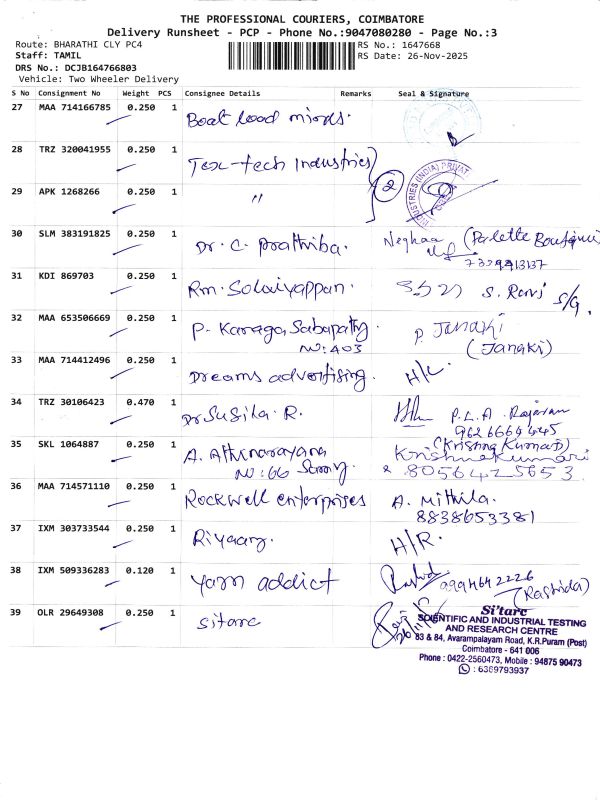 THE PROFESSIONAL COURIERS, COIMBATORE
Delivery Runsheet - PCP - Phone No.:9047080280 - Page No.:3
Route: BHARATHI CLY PC4 RS No.: 1647668
Staff: TAMIL RS Date: 26-Nov-2025
DRS No.: DCJB164766803
Vehicle: Two Wheeler Delivery
S No Consignment No Weight PCS Consignee Details Remarks Seal & Signature
27 MAA 714166785 0.250 1 Boat load
28 TRZ 320041955 0.250 1 Tex-tech Industries
29 APK 1268266 0.250 1 " 2
INDUSTRIES (INDIA) PRIVAT
30 SLM 383191825 0.250 1 Dr. C. Prathiba. Neghaa
31 KDI 869703 0.250 1 Rm. Solaiyappan. S. Ravi S/G.
32 MAA 653506669 0.250 1 P. Kanaga Sabapathy P. Janaki
No: 403 (Janaki)
33 MAA 714412496 0.250 1 Dreams advertising. H/L.
34 TRZ 30106423 0.470 1 Dr Susila. R. P.L.A. Rajaram
9626664445
35 SKL 1064887 0.250 1 A. Athinarayana (Krishna Kumari)
No: 66 Krishnakumari
& 8056425653
36 MAA 714571110 0.250 1 Rockwell enterprises A. Mithila.
8838653381
37 IXM 303733544 0.250 1 H/R.
38 IXM 509336283 0.120 1 yarn addict Rashid 9994642226
(Rashida)
39 OLR 29649308 0.250 1 sitarc
Si'tarc
SCIENTIFIC AND INDUSTRIAL TESTING
AND RESEARCH CENTRE
83 & 84, Avarampalayam Road, K.R.Puram (Post)
Coimbatore - 641 006
Phone : 0422-2560473, Mobile : 94875 90473
: 6369793937